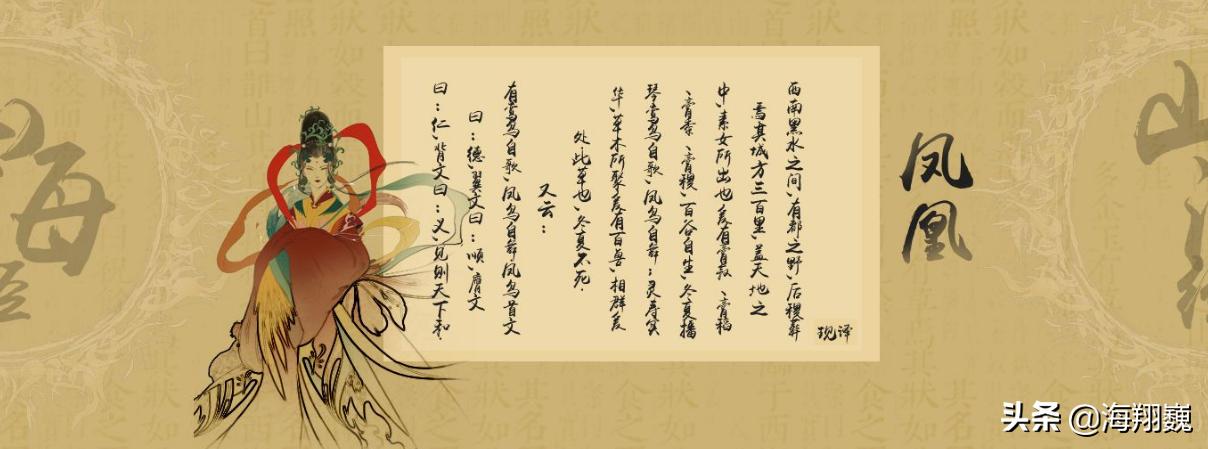 凤凰
西南黑水之间，有都之野，后稷葬
焉其城方三百里，盖天地之
中，素女所出也爰有膏菽、膏稻
、膏黍、膏稷，百谷自生，冬夏播
琴鸾鸟自歌，凤鸟自舞；灵寿实
华，草木所聚爰有百兽，相群爰
处此草也，冬夏不死.
又云：
有鸾鸟自歌，凤鸟自舞凤鸟首文
曰：德翼文曰：顺，膺文
曰：仁，背文曰：义，见则天下和.
现译
头条 @海翔巍